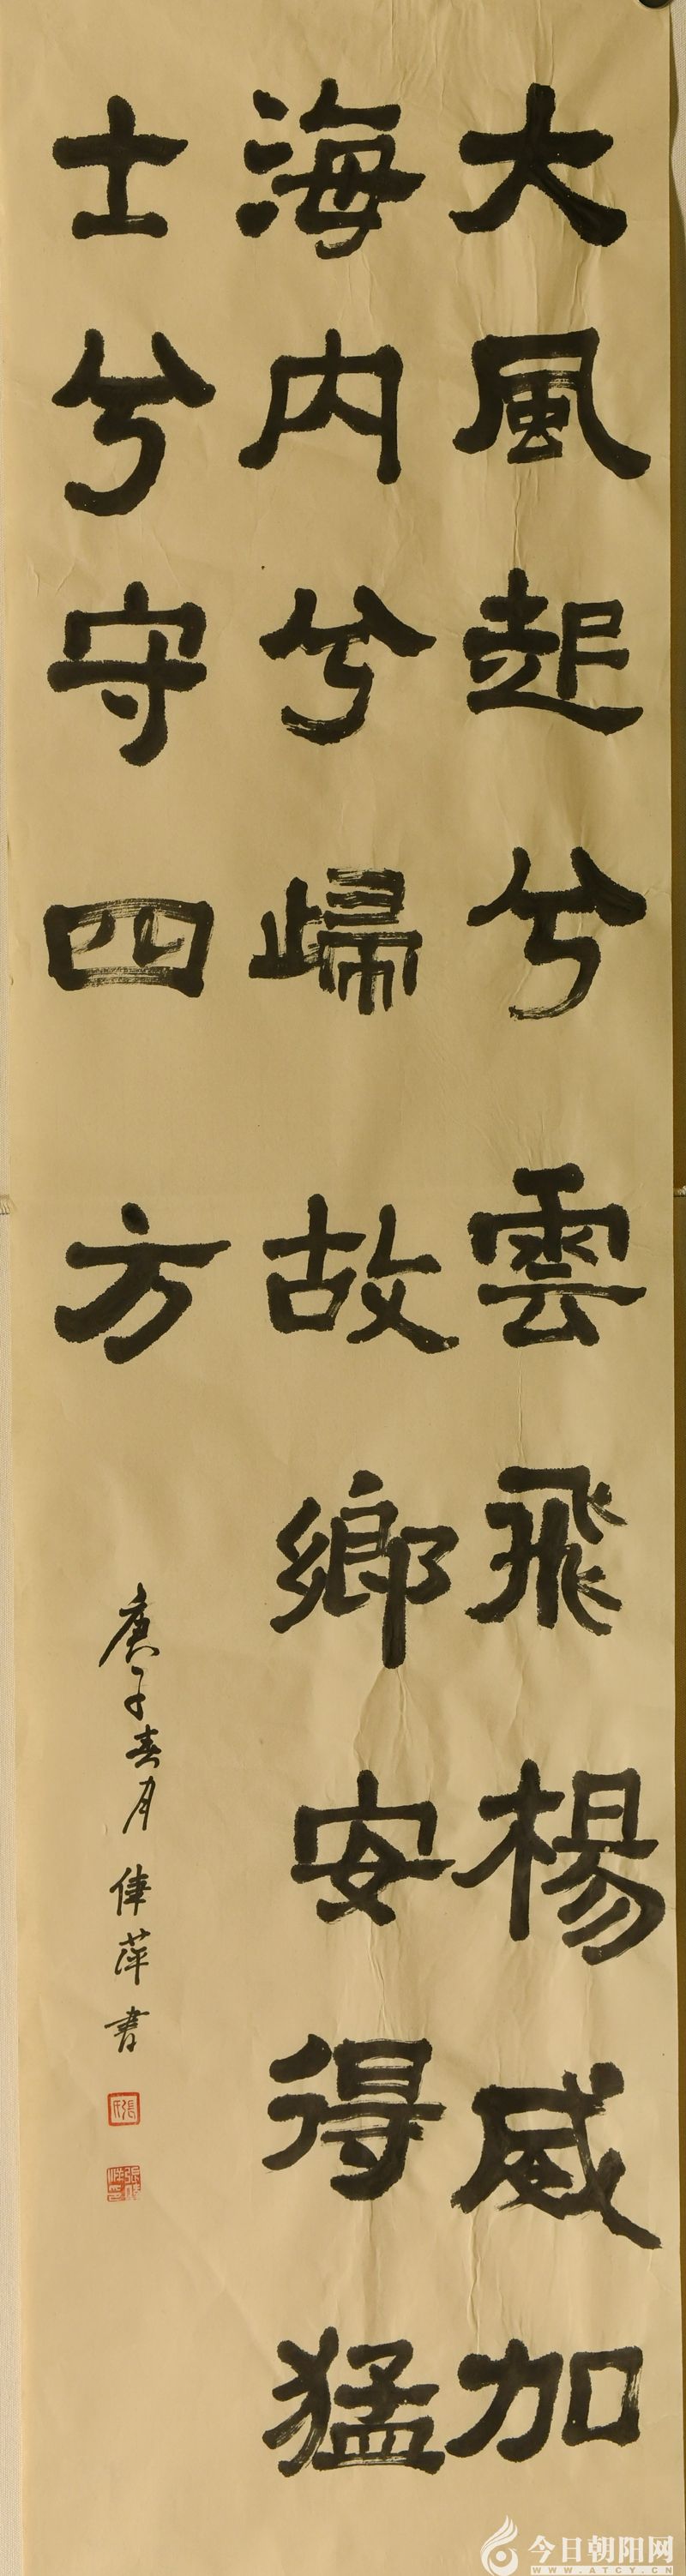 大風起兮雲飛楊威加
海内兮歸故鄉安得猛
士兮守四方
庚子春月 偉萍書
今日朝阳网
WWW.ATCY.CN